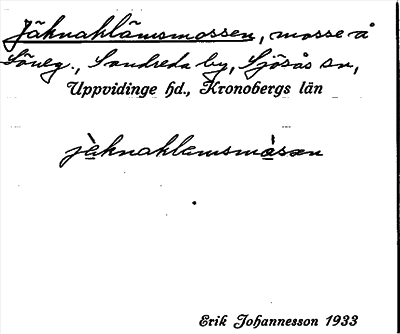 Jäknaklämsmossen, mosse å
Söreg., Sandreda by, Sjösås sn,
Uppvidinge hd., Kronobergs län
jàknaklamsmòsæn
Erik Johannesson 1933